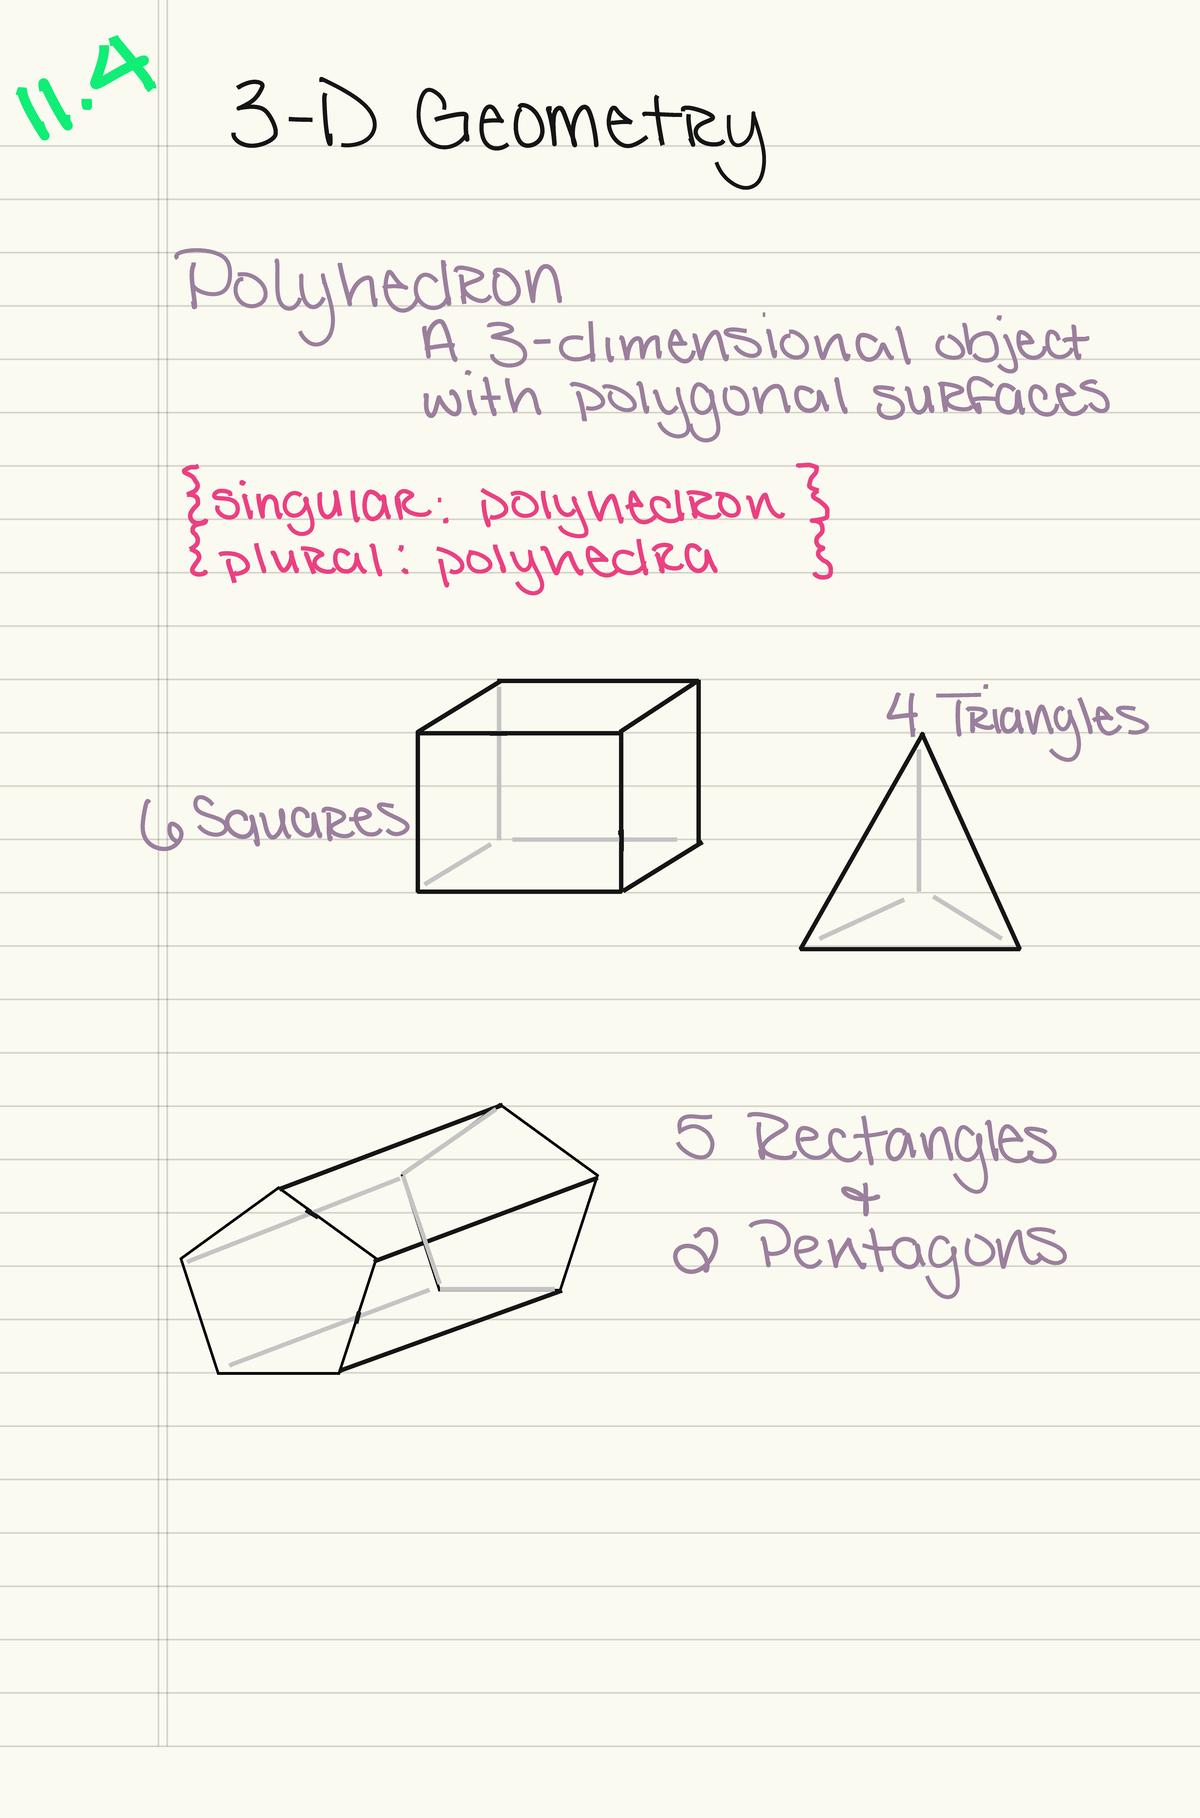 11.4
3-D Geometry
Polyhedron
A 3-dimensional object
with polygonal surfaces
{singular: polyhedron}
{plural: polyhedra}
4 Triangles
6 Squares
5 Rectangles
&
2 Pentagons